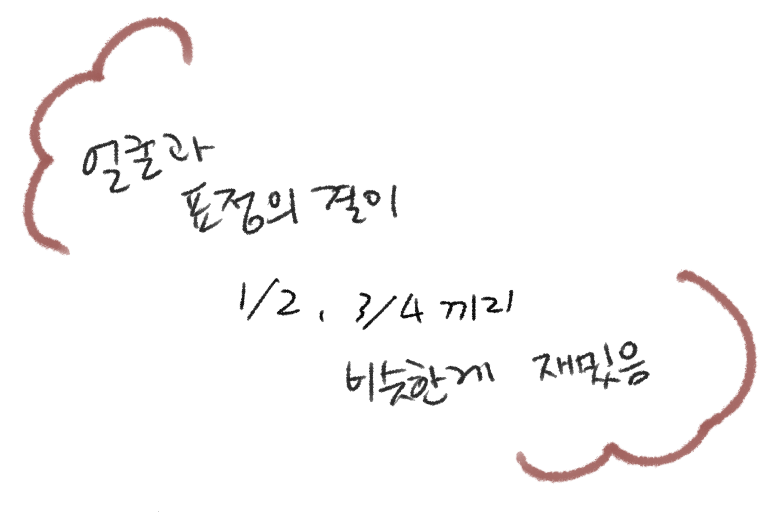 얼굴과
표정의 결이
1/2, 3/4 끼리
비슷한게 재밌음